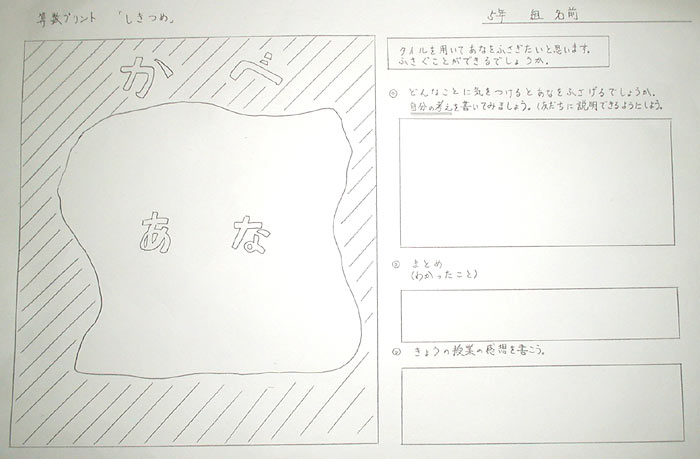 算数プリント 「しきつめ」
5年 組 名前
かべ
あな
タイルを用いてあなをふさぎたいと思います。
ふさぐことができるでしょうか。
① どんなことに気をつけるとあなをふさげるでしょうか。
自分の考えを書いてみましょう。(友だちに説明できるようにしよう。
② まとめ
(わかったこと)
③ きょうの授業の感想を書こう。